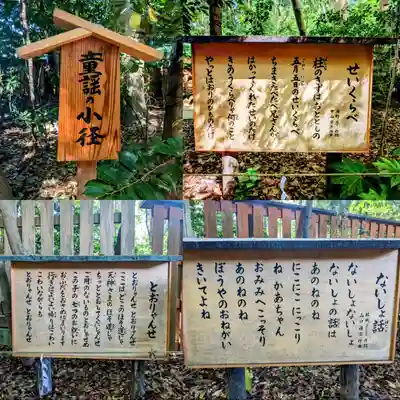 童謡の小径
せいくらべ
柱のきずはおととしの
五月五日のせいくらべ
ちまきたべたべ兄さんが
はかってくれたせいのたけ
きのうくらべりゃ何のこと
やっとはおりのひものたけ
とおりゃんせ
とおりゃんせ とおりゃんせ
ここはどこのほそ道じゃ
天神さまのほそ道じゃ
ちょっと通してくだしゃんせ
ご用のないものとおしゃせぬ
この子の七つのお祝いに
お札をおさめにまいります
行きはよいよい帰りはこわい
こわいながらも
とおりゃんせ とおりゃんせ
ないしょ話
ないしょ ないしょ
ないしょの話は
あのねのね
にこにこ にっこり
ね かあちゃん
おみみへ こっそり
あのねのね
ぼうやのおねがい
きいてよね